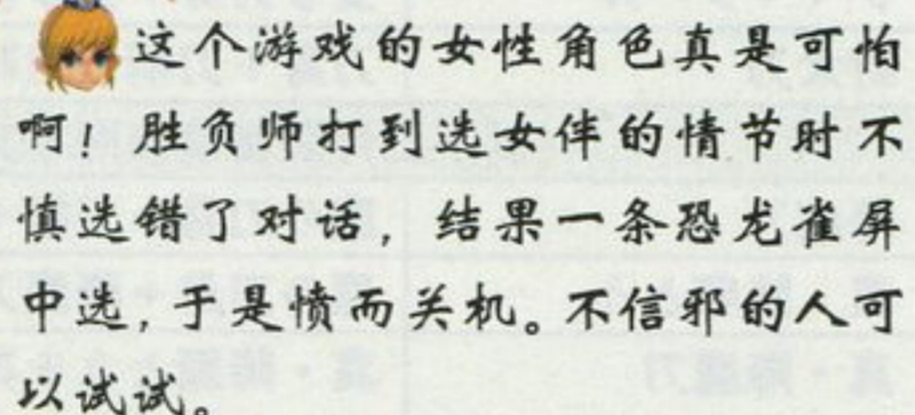 这个游戏的女性角色真是可怕
啊！胜负师打到选女伴的情节时不
慎选错了对话，结果一条恐龙雀屏
中选，于是愤而关机。不信邪的人可
以试试。